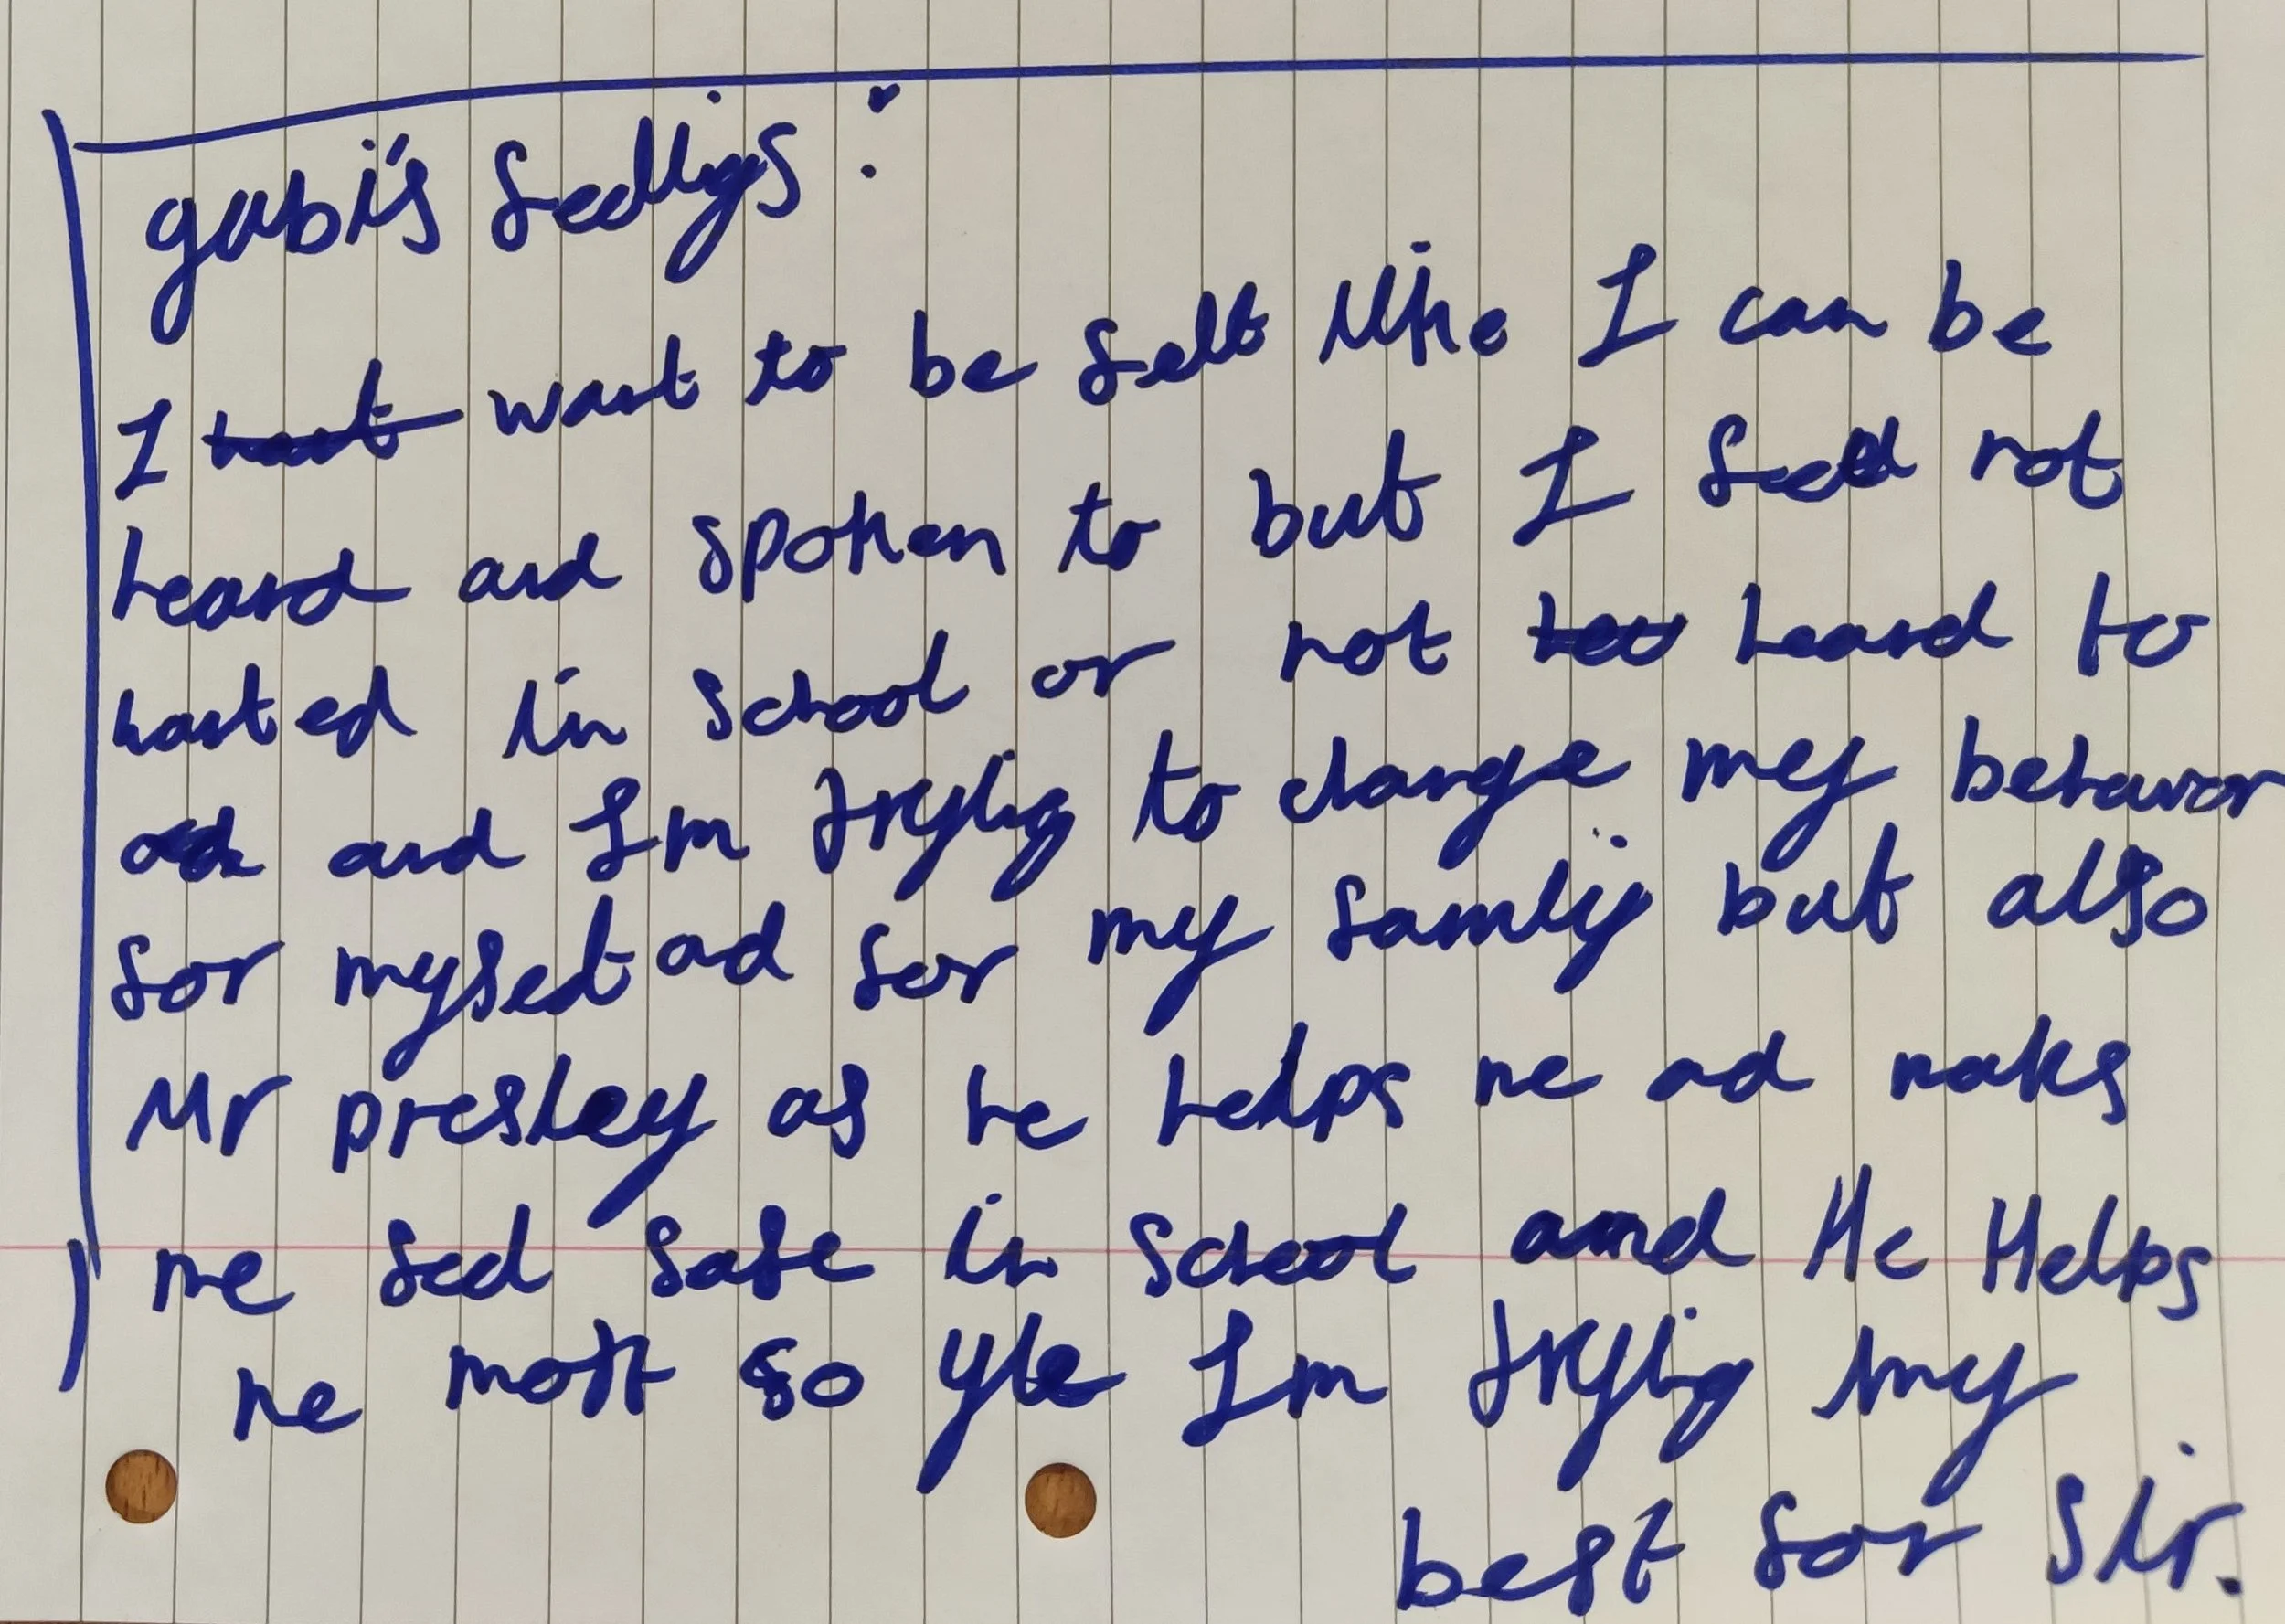 gabi's feelligs :
I want to be felt like I can be
heard and spoken to but I feel not
wanted in school or not heard to
and I'm tryiig to change my behavor
for myself ad for my family but also
Mr presley as he helps me ad maks
me feel safe in school and He Helps
me so yle I'm tryiig my
best for sir.